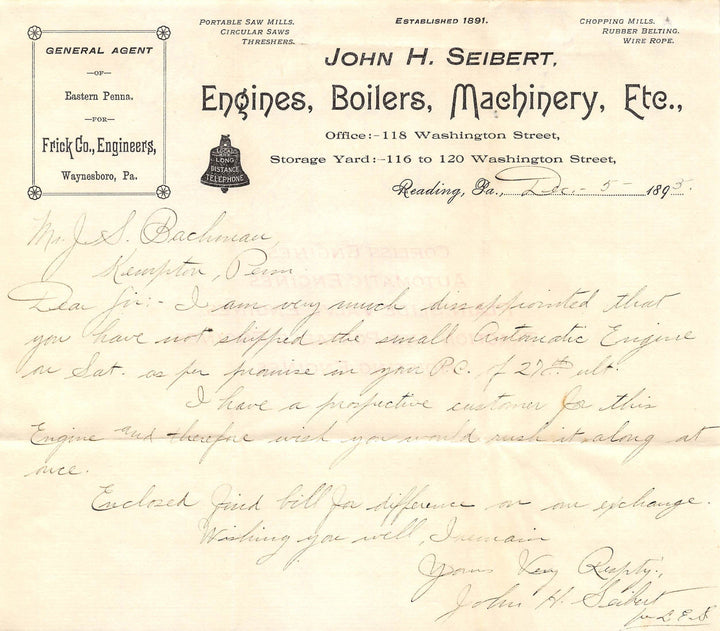 GENERAL AGENT
—OF—
Eastern Penna.
—FOR—
Frick Co., Engineers,
Waynesboro, Pa.
PORTABLE SAW MILLS.
CIRCULAR SAWS
THRESHERS.
ESTABLISHED 1891.
CHOPPING MILLS.
RUBBER BELTING.
WIRE ROPE.
JOHN H. SEIBERT,
Engines, Boilers, Machinery, Etc.,
Office:-118 Washington Street,
Storage Yard:-116 to 120 Washington Street,
LOCAL
LONG
DISTANCE
TELEPHONE
Reading, Pa., Dec. - 5 - 1895.
Mr. J. S. Bachman,
Kempton, Penn
Dear Sir:- I am very much disappointed that
you have not shipped the small Automatic Engine
on Sat. as per promise in your P.C. of 27th ult.
I have a prospective customer for this
Engine and therefore wish you would rush it along at
once.
Enclosed find bill for difference on our exchange.
Wishing you well, I remain
Yours Very Respty.,
John H. Seibert
per L.E.S.
CORLISS ENGINES
AUTOMATIC ENGINES